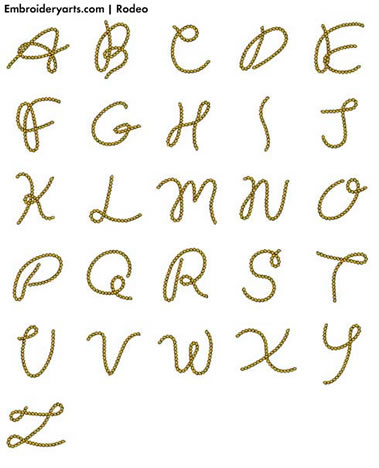 Embroideryarts.com | Rodeo
A B C D E
F G H I J
K L M N O
P Q R S T
U V W X Y
Z